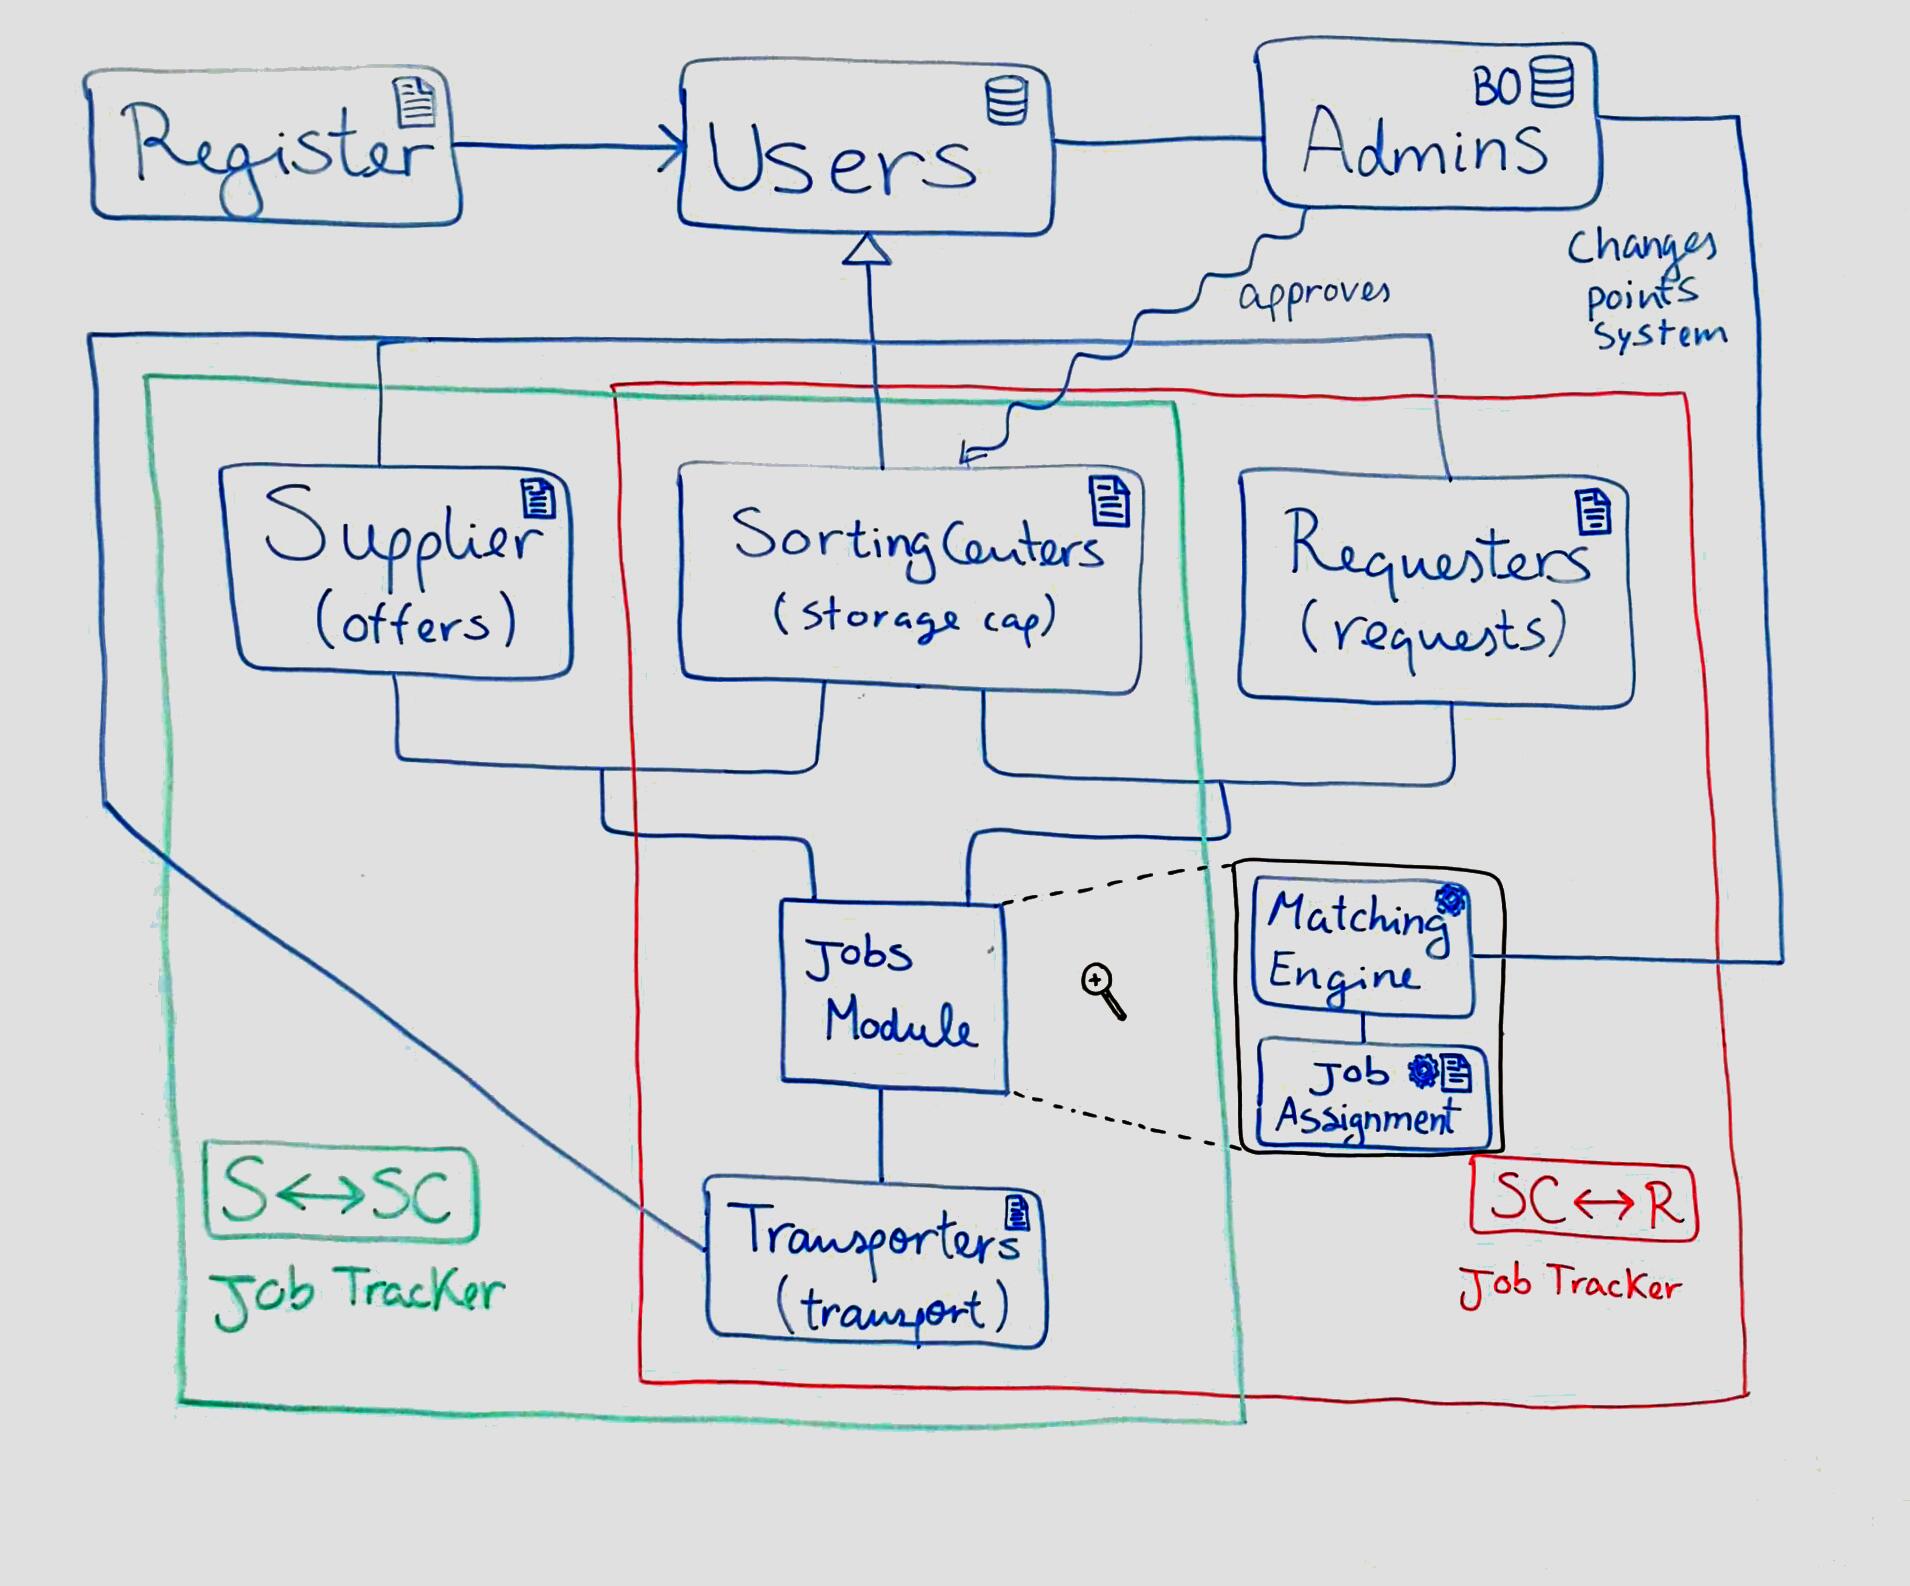 Register
Users
BO
Admins
approves
Changes
points
system
Supplier
(offers)
Sorting Centers
(storage cap)
Requesters
(requests)
Jobs
Module
Matching
Engine
Job
Assignment
Transporters
(transport)
S↔SC
Job Tracker
SC↔R
Job Tracker